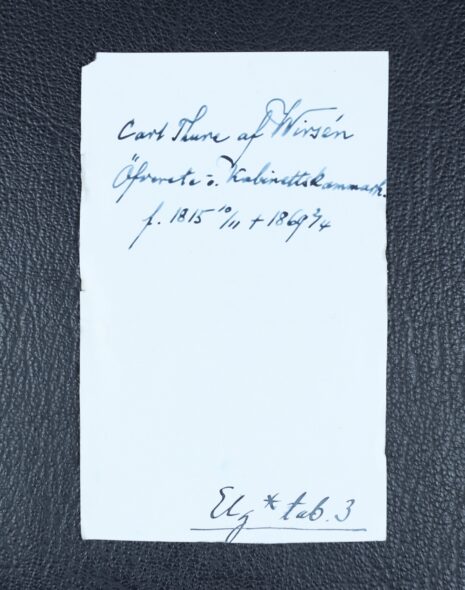 Carl Thure af Wirsén
Öfverste o. Kabinettskammarh.
f. 1815 10/11 + 1869 2/4
Elg * tab. 3